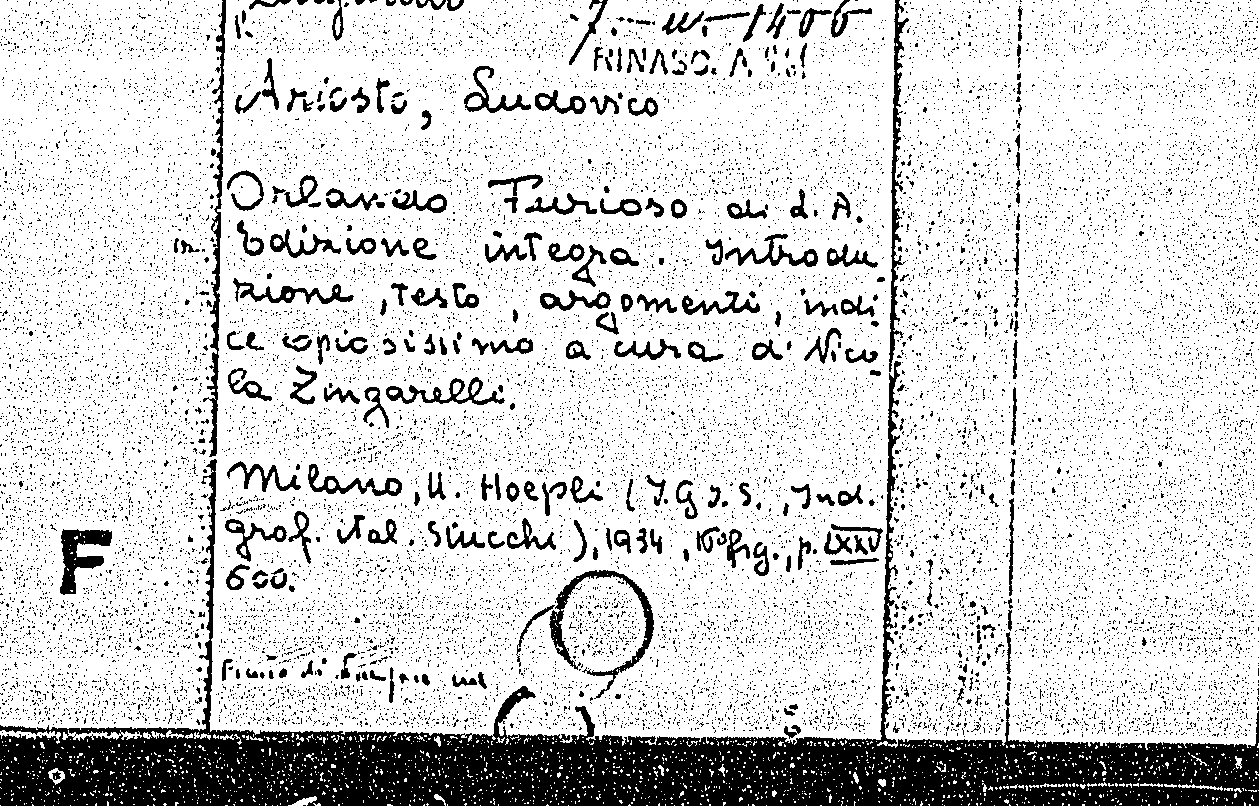 7. - III. - 1406
RINASC. A
Ariosto, Ludovico
Orlando Furioso di L. A.
Edizione integra. Introdu
zione, testo, argomenti, indi
ce copiosissimo a cura di Nico
la Zingarelli.
F
Milano, U. Hoepli (T.G.I.S., Ind.
graf. ital. Stucchi), 1934, 16° fig., p. LXXV
600.